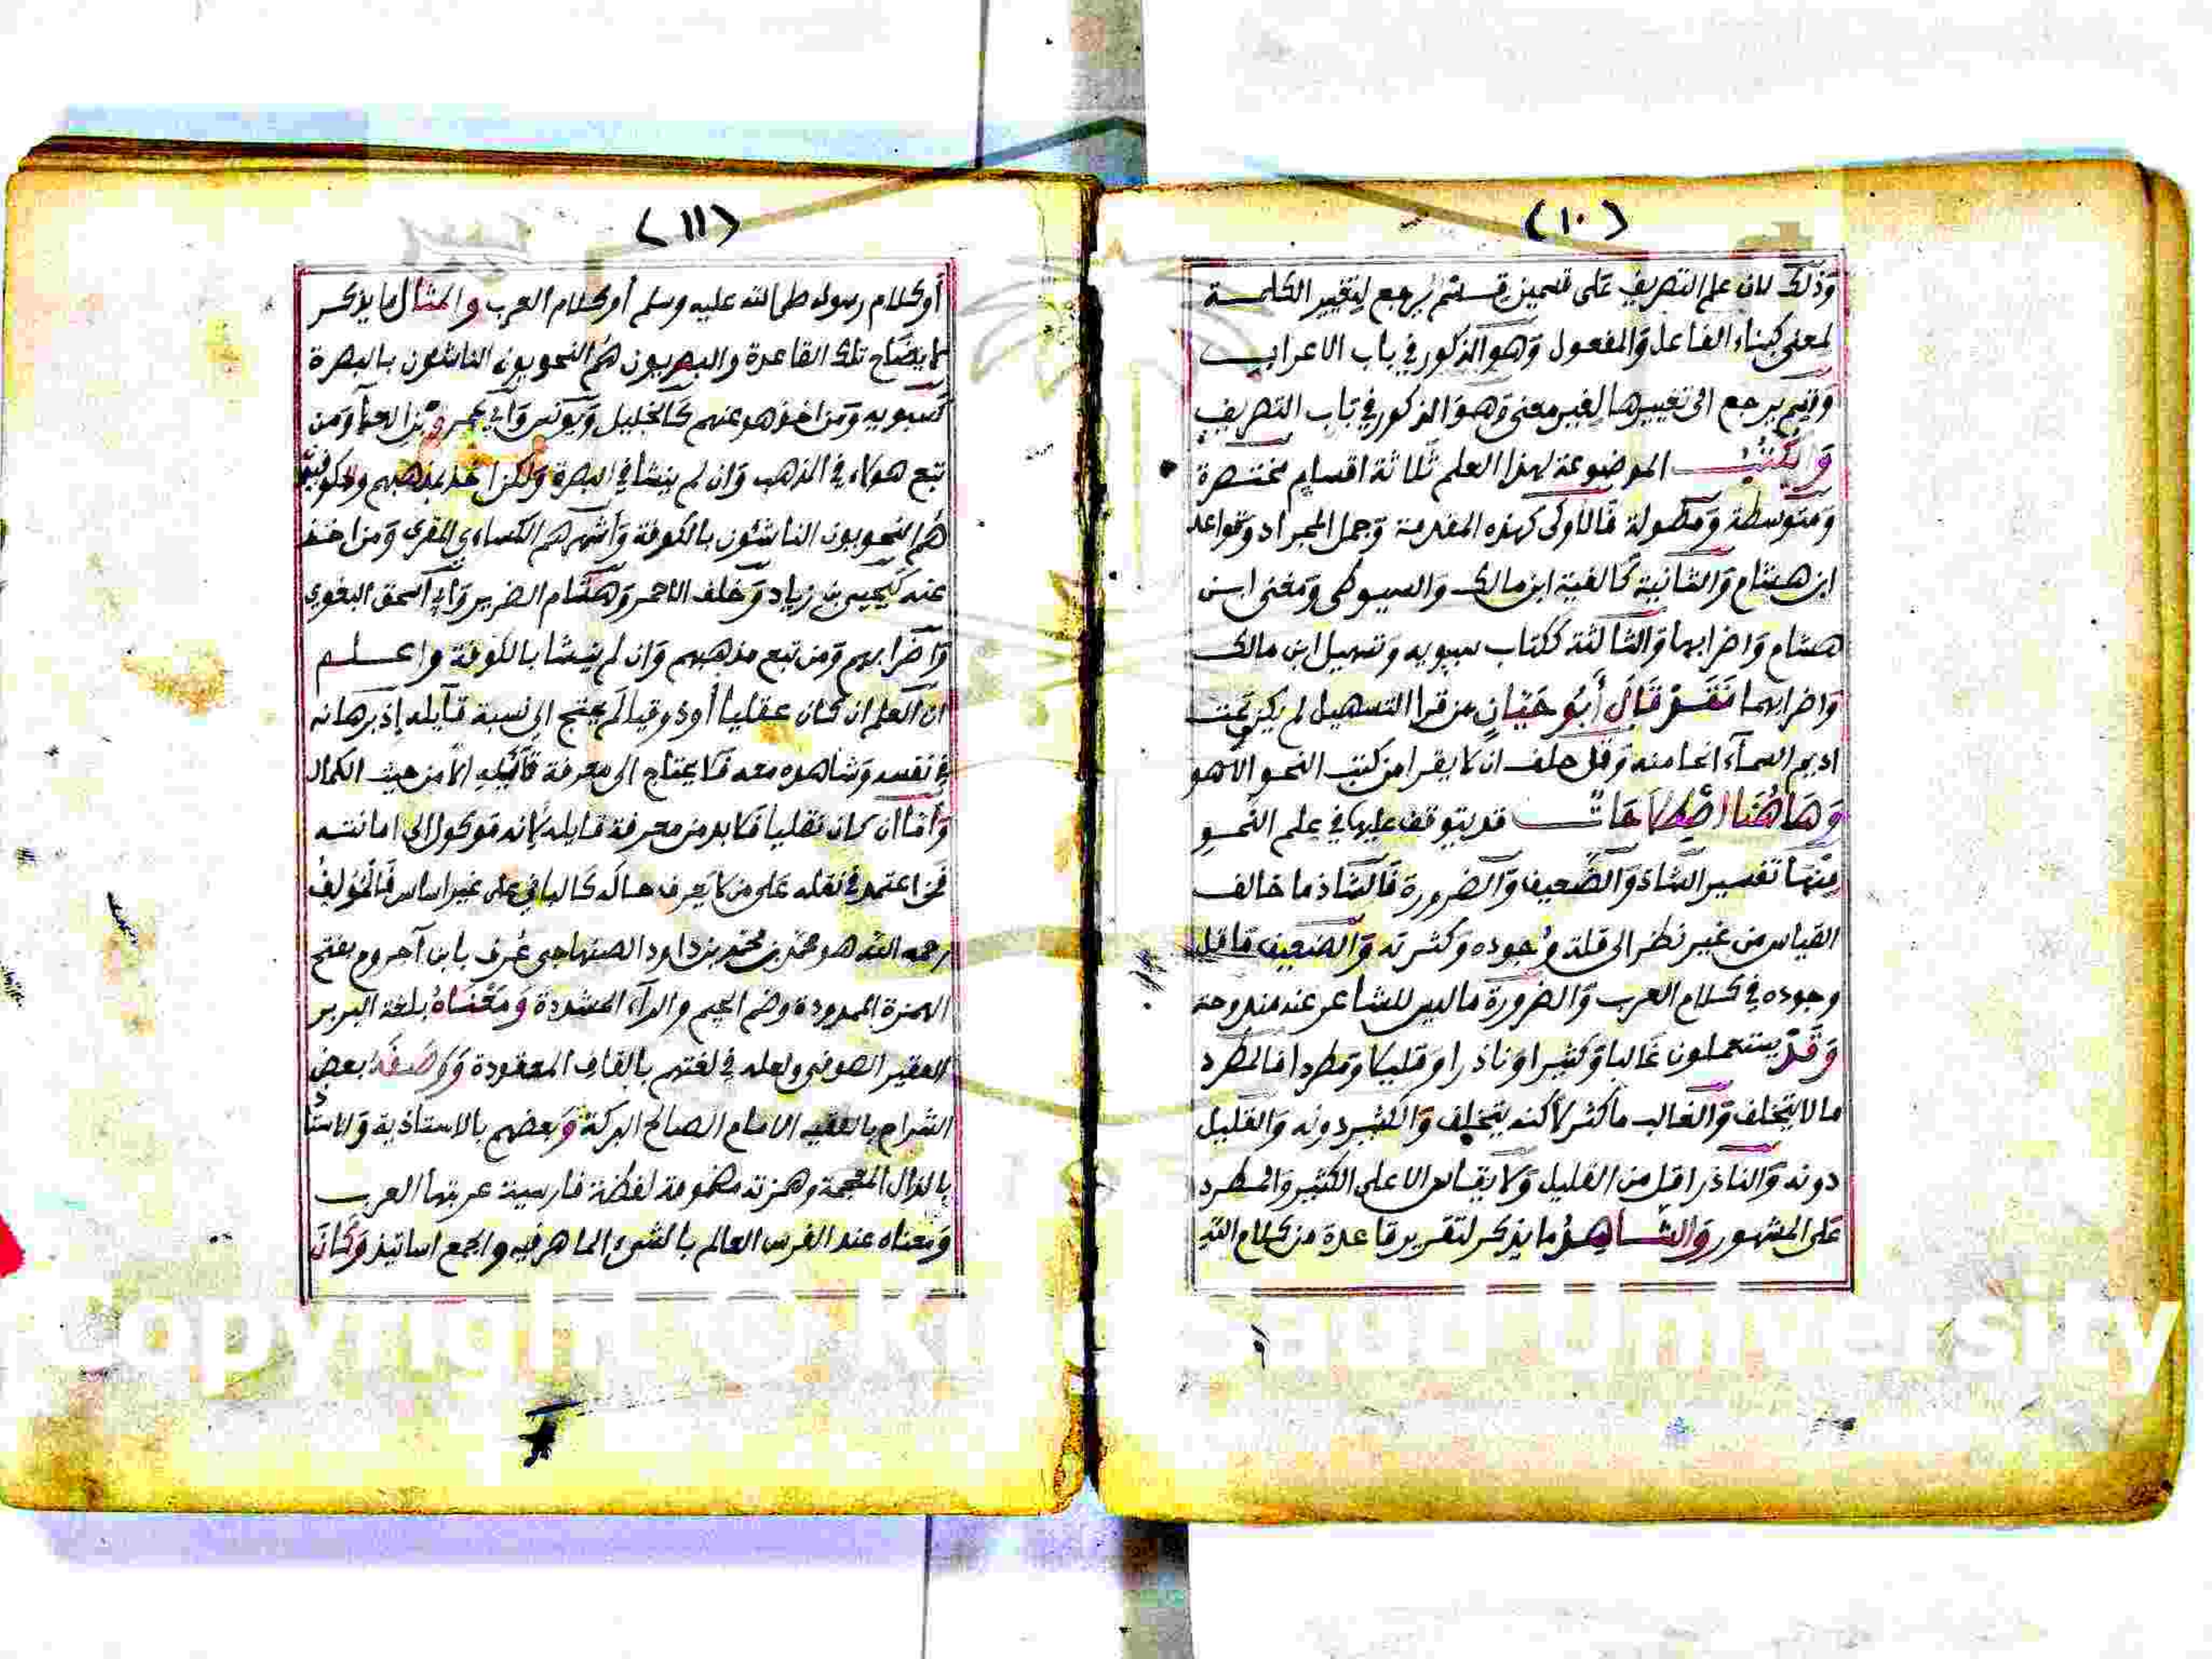 (١٠)
وذلك لان علم التصريف على قسمين قسم يرجع لتغيير الكلمة
لمعنى كبناء الفاعل والمفعول وهو المذكور في باب الاعراب
وقسم يرجع الى تغييرها لغير معنى وهو المذكور في باب التصريف
والكتب الموضوعة لهذا العلم ثلاثة اقسام مختصرة
ومتوسطة ومطولة فالاولى كهذه المقدمة وجمل المجراد وقواعد
ابن هشام والثانية كالفية ابن مالك والسيوطي ومغنى ابن
هشام واضرابها والثالثة ككتاب سيبويه وتسهيل ابن مالك
واضرابهما فقد قال أبو حيان من قرا التسهيل لم يكن تحت
اديم السمآء انحا منه وقل حلف ان لا يقرا من كتب النحو الا هو
وهاهنا اصطلاحات قد يتوقف عليها في علم النحو
منها تفسير الشاذ والضعيف والضرورة فالشاذ ما خالف
القياس من غير نظر الى قلة وجوده وكثرته والضعيف ما قل
وجوده في كلام العرب والضرورة ما ليس للشاعر عنه مندوحة
وقد يستعملون غالبا وكثيرا وناذرا وقليلا ومطردا فالمطرد
ما لا يتخلف والغالب ما كثر لاكنه يتخلف والكثير دونه والقليل
دونه والناذر اقل من القليل ولا يقاس الا على الكثير والمطرد
على المشهور والشاهد ما يذكر لتقرير قاعدة من كلام الله
(١١)
أو كلام رسوله صلى الله عليه وسلم أو كلام العرب والمثال ما يذكر
لايضاح تلك القاعدة والبصريون هم النحويون الناشئون بالبصرة
كسبويه ومن اخذ هو عنهم كالخليل ويونس وأبي عمرو بن العلآ ومن
تبع هولاء في المذهب وان لم ينشا في البصرة ولكن اخذ بمذهبهم والكوفيون
هم النحويون الناشئون بالكوفة وأشهرهم الكساءي المقري ومن اخذ
عنه كيحيى بن زياد وخلف الاحمر وهشام الضرير وأبي اسحق البغوي
واضرابهم ومن تبع مذهبهم وان لم ينشا بالكوفة واعلم
ان العلم ان كان عقليا أو ذوقيا لم يحتج الى نسبة قآيله إذ برهانه
في نفسه وشاهده معه فلا يحتاج الى معرفة قآئله الا من حيث الكمال
وأما ان كان نقليا فلا بد من معرفة قايله لانه موكول الى امانته
فمن اعتمد في نقله على من لا يعرف حاله كالباني على غير اساس فالمؤلف
رحمه الله هو محمد بن محمد بن داود الصنهاجي عُرف بابن آجروم بفتح
الهمزة الممدودة وضم الجيم والرآء المشددة ومعناه بلغة البربر
الفقير الصوفي ولعله في لغتهم بالقاف المعقودة ووصفه بعض
الشراح بالفقيه الامام الصالح البركة وبعضهم بالاستاذية والاستاذ
بالذال المعجمة وهمزته مضمومة لفظة فارسية عربتها العرب
ومعناه عند الفرس العالم بالشيء الماهر فيه والجمع اساتيذ وكان
Copyright © King Saud University